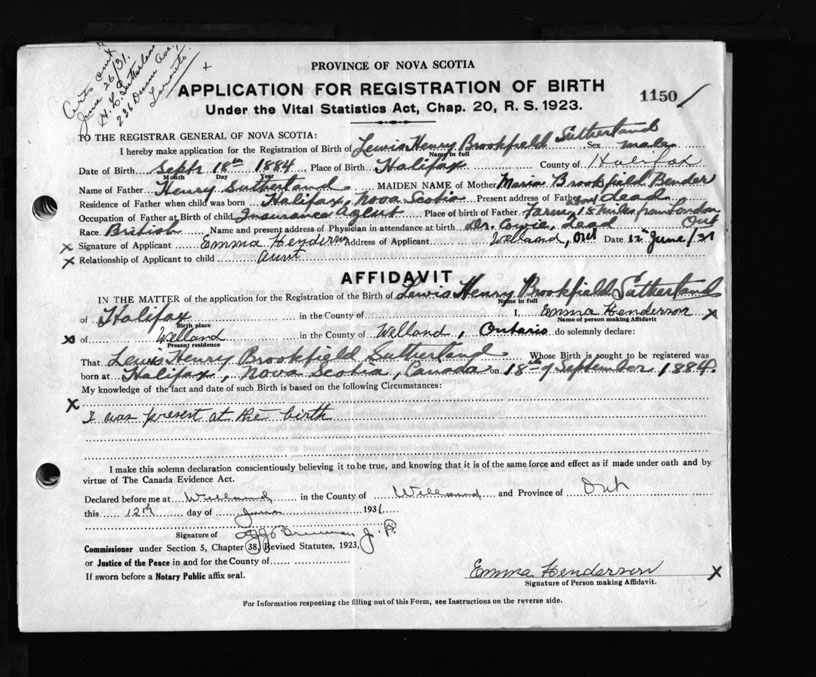 Certs out
June 26/31.
H. C. Sutherland
236 Ave.,
Toronto.
PROVINCE OF NOVA SCOTIA
APPLICATION FOR REGISTRATION OF BIRTH 1150
Under the Vital Statistics Act, Chap. 20, R. S. 1923.
TO THE REGISTRAR GENERAL OF NOVA SCOTIA:
I hereby make application for the Registration of Birth of Lewis Henry Brookfield Sutherland, Sex male
Name in full
Date of Birth Septr 18th 1884 Place of Birth Halifax County of Halifax
Month Day Year
Name of Father Henry Sutherland MAIDEN NAME of Mother Maria Brookfield Bender
Residence of Father when child was born Halifax, Nova Scotia Present address of Father dead
Occupation of Father at Birth of child Insurance Agent Place of birth of Father Farm, 15 miles from London, Ont
Race British Name and present address of Physician in attendance at birth Dr. Cowie, dead
x Signature of Applicant Emma Henderson Address of Applicant Welland, Ont Date 12th June/31
x Relationship of Applicant to child aunt
AFFIDAVIT
IN THE MATTER of the application for the Registration of the Birth of Lewis Henry Brookfield Sutherland
Name in full
of Halifax in the County of I, Emma Henderson x
Birth place Name of person making Affidavit
x of Welland in the County of Welland, Ontario do solemnly declare:
Present residence
That Lewis Henry Brookfield Sutherland Whose Birth is sought to be registered was
born at Halifax, Nova Scotia, Canada on 18 of September 1884.
My knowledge of the fact and date of such Birth is based on the following Circumstances:
x
I was present at the birth
I make this solemn declaration conscientiously believing it to be true, and knowing that it is of the same force and effect as if made under oath and by
virtue of The Canada Evidence Act.
Declared before me at Welland in the County of Welland and Province of Ont
this 12th day of June 1931
Signature of J. P.
Commissioner under Section 5, Chapter 38, Revised Statutes, 1923,
or Justice of the Peace in and for the County of
If sworn before a Notary Public affix seal.
Emma Henderson x
Signature of Person making Affidavit.
For Information respecting the filling out of this Form, see Instructions on the reverse side.